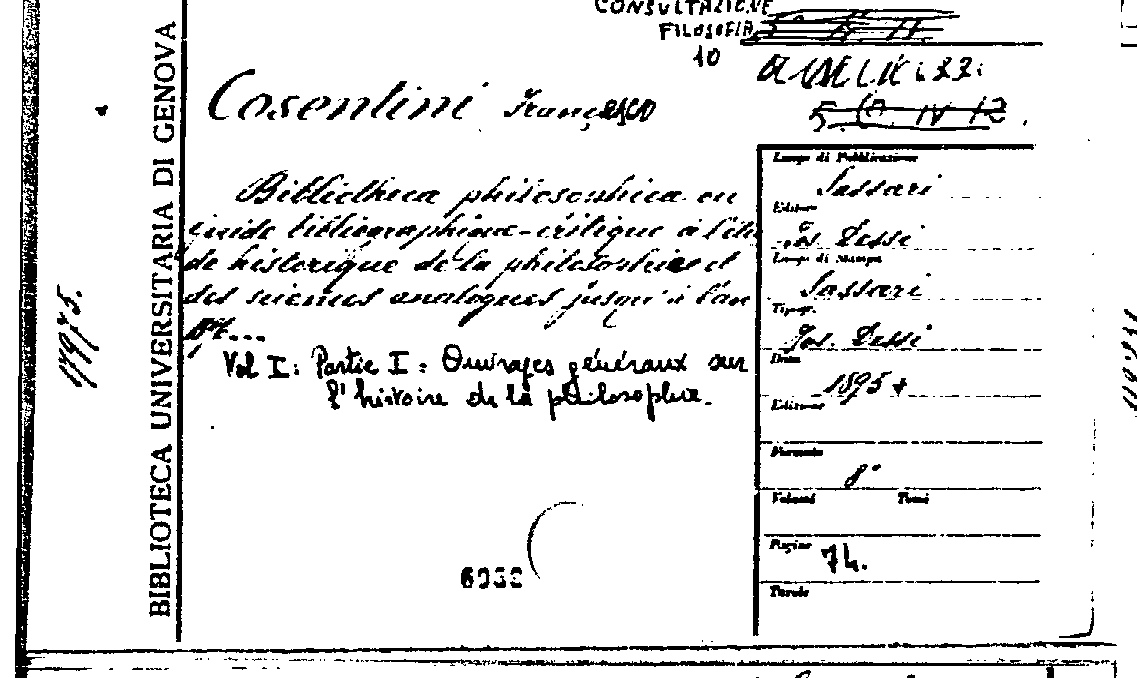 CONSULTAZIONE
FILOSOFIA
10
5. IV 12.
Cosentini Francesco
Bibliotheca philosophica ou
guide bibliographique-critique à l'étu
de historique de la philosophie et
des sciences analogues jusqu'à l'an
Vol I: Partie I: Ouvrages généraux sur
l'histoire de la philosophie.
BIBLIOTECA UNIVERSITARIA DI GENOVA
Luogo di Pubblicazione
Sassari
Editore
Jos. Dessi
Luogo di Stampa
Sassari
Tipogr.
Jos. Dessi
Data
1895 +
Edizione
Formato
8°
Volumi Tomi
Pagine
74.
Tavole